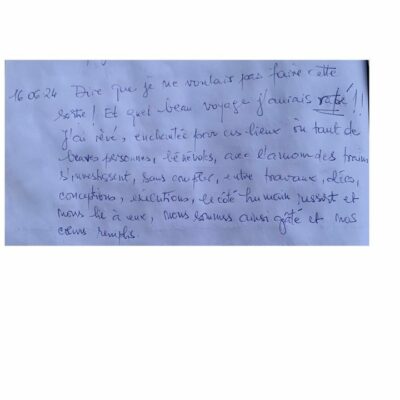 16 06 24 Dire que je ne voulais pas faire cette
sortie! Et quel beau voyage j'aurais raté!!
J'ai rêvé, enchantée par ces lieux où tant de
braves personnes, bénévoles, avec l'amour des trains
s'investissent, sans compter, entre travaux, déco,
conceptions, exécutions, le côté humain ressort et
nous lie à eux, nous sommes ainsi gâtés et nos
cœurs remplis.